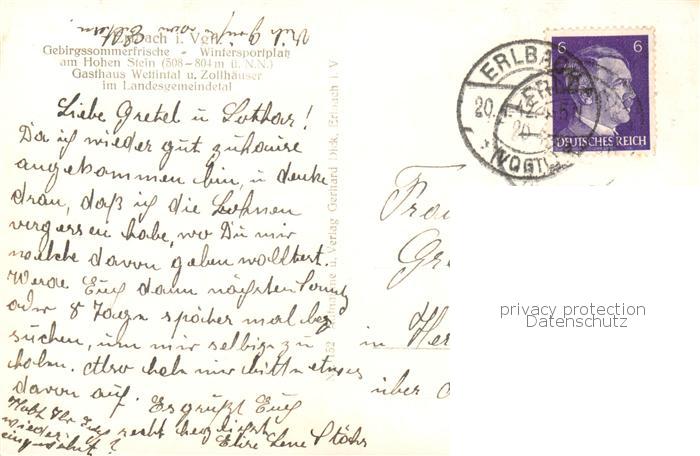 Erlbach i. Vogtl.
Gebirgssommerfrische - Wintersportplatz
am Hohen Stein (508-804 m ü. N.N.)
Gasthaus Wettintal u. Zollhäuser
im Landesgemeindetal
Liebe Gretel u Lothar!
Da ich wieder gut zuhause
angekommen bin, u denke
dran, daß ich die Bohnen
vergessen habe, wo Du mir
welche davon geben wolltest.
Werde Euch dann nächsten Sonntg
oder 8 Tage später mal be
suchen, um mir selbige zu
holen. Also heb mir bitte etwas
davon auf. Es grüßt Euch
recht herzlichst
Eure Lene Stöhr
Habt Ihr Euch
wieder
eingewöhnt?
Verlag Gerhard Dick, Erlbach i. V
Frau
Gre
in Her
über
ERLBACH
20.
(VOGTL)
6 6
DEUTSCHES REICH
privacy protection
Datenschutz